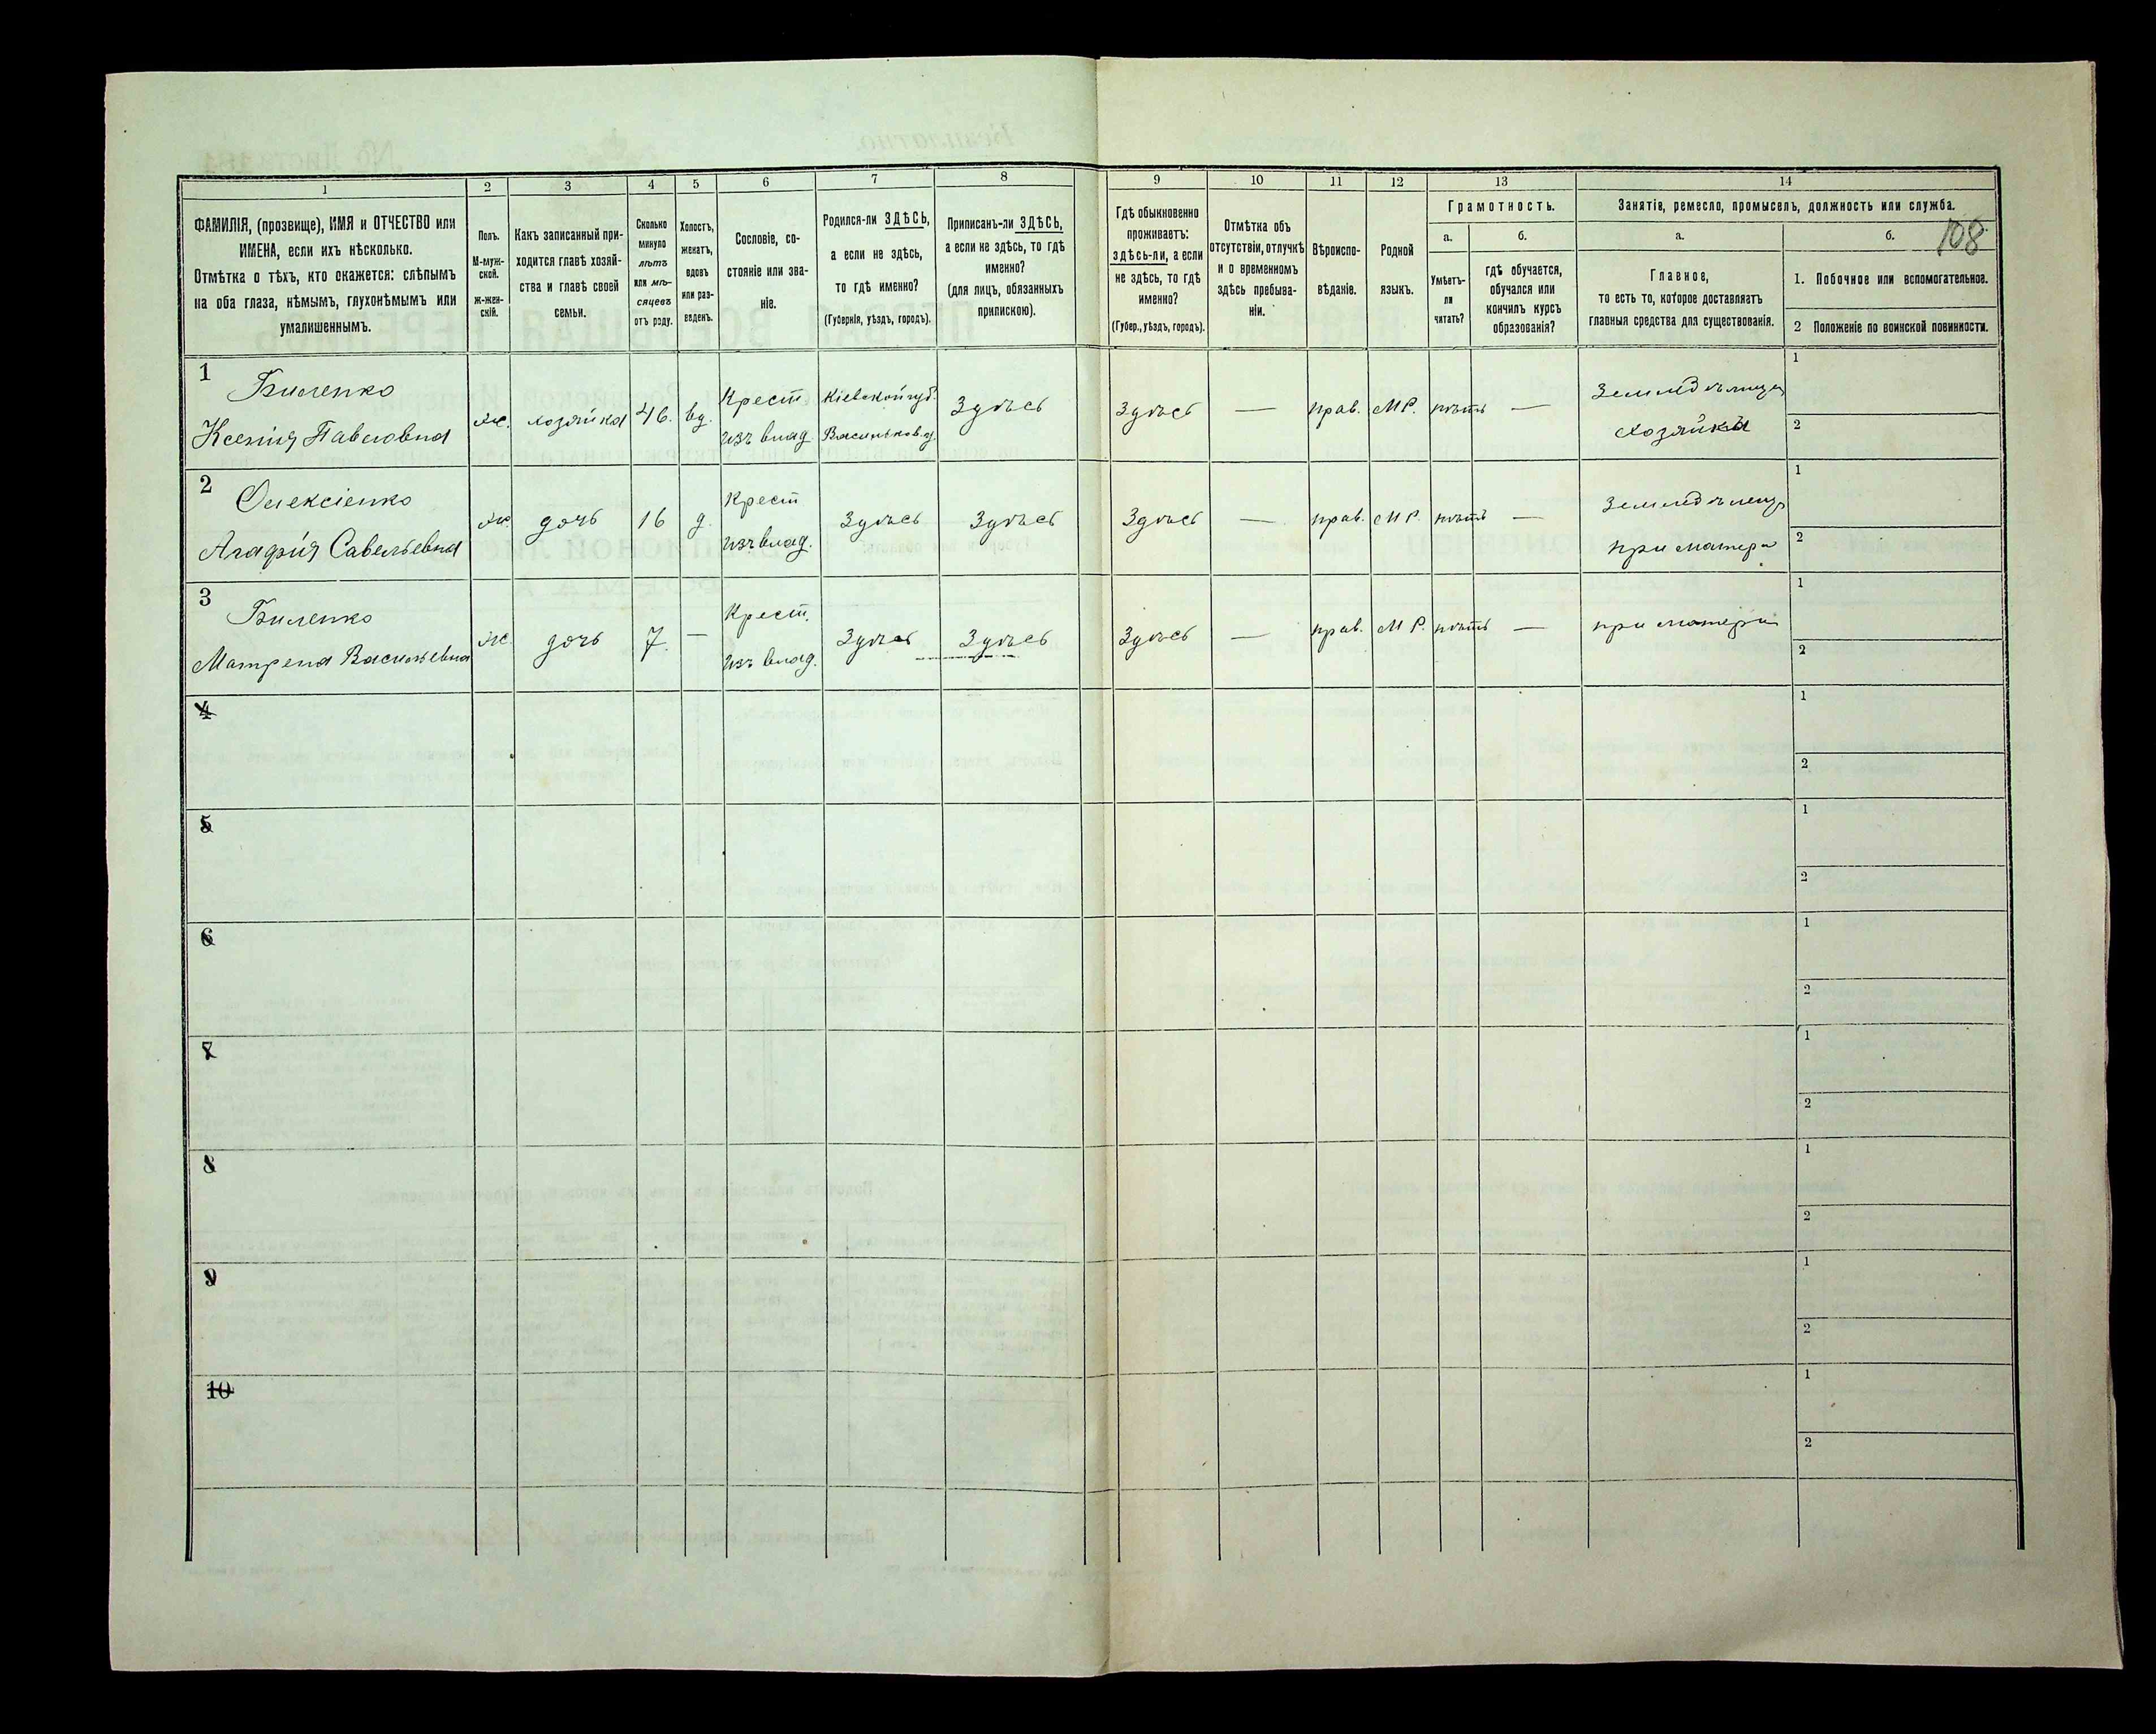 1 2 3 4 5 6 7 8 9 10 11 12 13 14
ФАМИЛІЯ, (прозвище), ИМЯ и ОТЧЕСТВО или
ИМЕНА, если ихъ нѣсколько.
Отмѣтка о тѣхъ, кто окажется: слѣпымъ
на оба глаза, нѣмымъ, глухонѣмымъ или
умалишеннымъ.
Полъ.
М-муж-
ской.
ж-жен-
скій.
Какъ записанный при-
ходится главѣ хозяй-
ства и главѣ своей
семьи.
Сколько
минуло
лѣтъ
или мѣ-
сяцевъ
отъ роду.
Холостъ,
женатъ,
вдовъ
или раз-
веденъ.
Сословіе, со-
стояніе или зва-
ніе.
Родился-ли ЗДѢСЬ,
а если не здѣсь,
то гдѣ именно?
(Губернія, уѣздъ, городъ).
Приписанъ-ли ЗДѢСЬ,
а если не здѣсь, то гдѣ
именно?
(для лицъ, обязанныхъ
припискою).
Гдѣ обыкновенно
проживаетъ:
здѣсь-ли, а если
не здѣсь, то гдѣ
именно?
(Губер., уѣздъ, городъ).
Отмѣтка объ
отсутствіи, отлучкѣ
и о временномъ
здѣсь пребыва-
ніи.
Вѣроиспо-
вѣданіе.
Родной
языкъ.
Грамотность.
а.
Умѣетъ-
ли
читать?
б.
гдѣ обучается,
обучался или
кончилъ курсъ
образованія?
Занятіе, ремесло, промыселъ, должность или служба.
108
а.
Главное,
то есть то, которое доставляетъ
главныя средства для существованія.
б.
1. Побочное или вспомогательное.
2 Положеніе по воинской повинности.
1
Биленко
Ксенія Павловна
ж.
хозяйка
46.
вд.
Крест
изъ влад.
Кіевской губ.
Васильков. у.
Здѣсь
Здѣсь
—
прав.
МР.
нѣтъ
—
Земледѣлица
хозяйка
1
2
2
Олексіенко
Агафія Савельевна
ж.
дочь
16
д.
Крест
изъ влад.
Здѣсь
Здѣсь
Здѣсь
—
прав.
МР.
нѣтъ
—
при матери
1
2
3
Биленко
Матрена Васильевна
ж.
дочь
7.
—
Крест.
изъ влад.
Здѣсь
Здѣсь
Здѣсь
—
прав.
МР.
нѣтъ
—
при матери
1
2
4
1
2
5
1
2
6
1
2
7
1
2
8
1
2
9
1
2
10
1
2